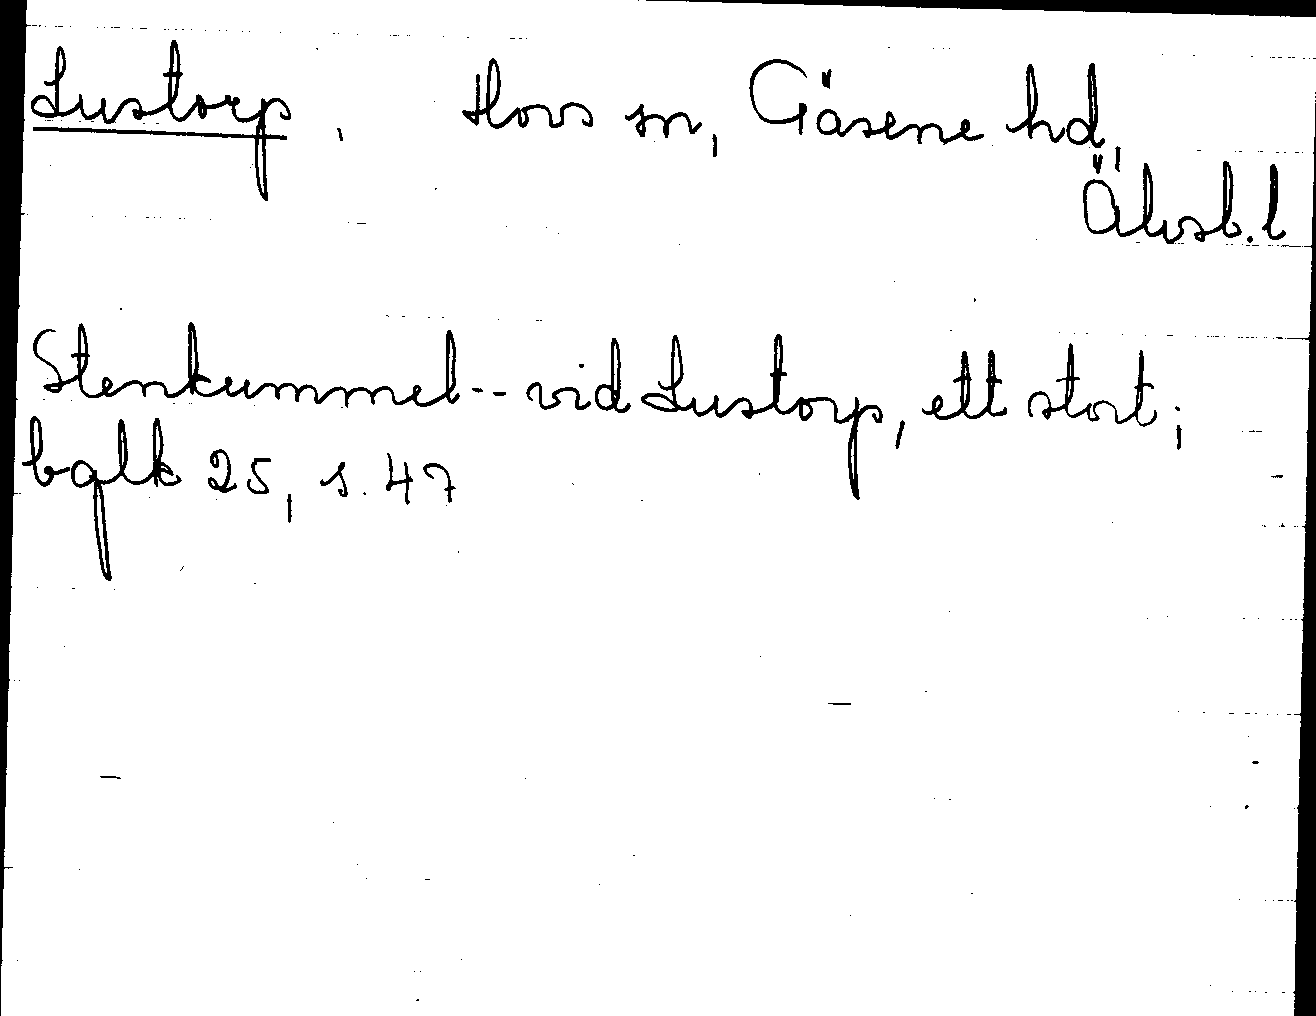 Lustorp. Hovs sn, Gäsene hd,
Älvsb. l
Stenkummel -- vid Lustorp, ett stort;
bqlk 25, s. 47